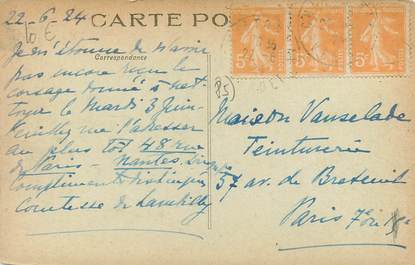 22-6-24
CARTE PO
Correspondance
Je m'étonne de n'avoir
pas encore reçu le
corsage donné à net-
toyer le Mardi 3 Juin
Veuillez me l'adresser
au plus tôt 48 rue
de Paris - Nantes.
Compliments distingués
Comtesse de
5c 5c 5c
Maison Vanselade
Teinturerie
57 av. de Breteuil
Paris 7e